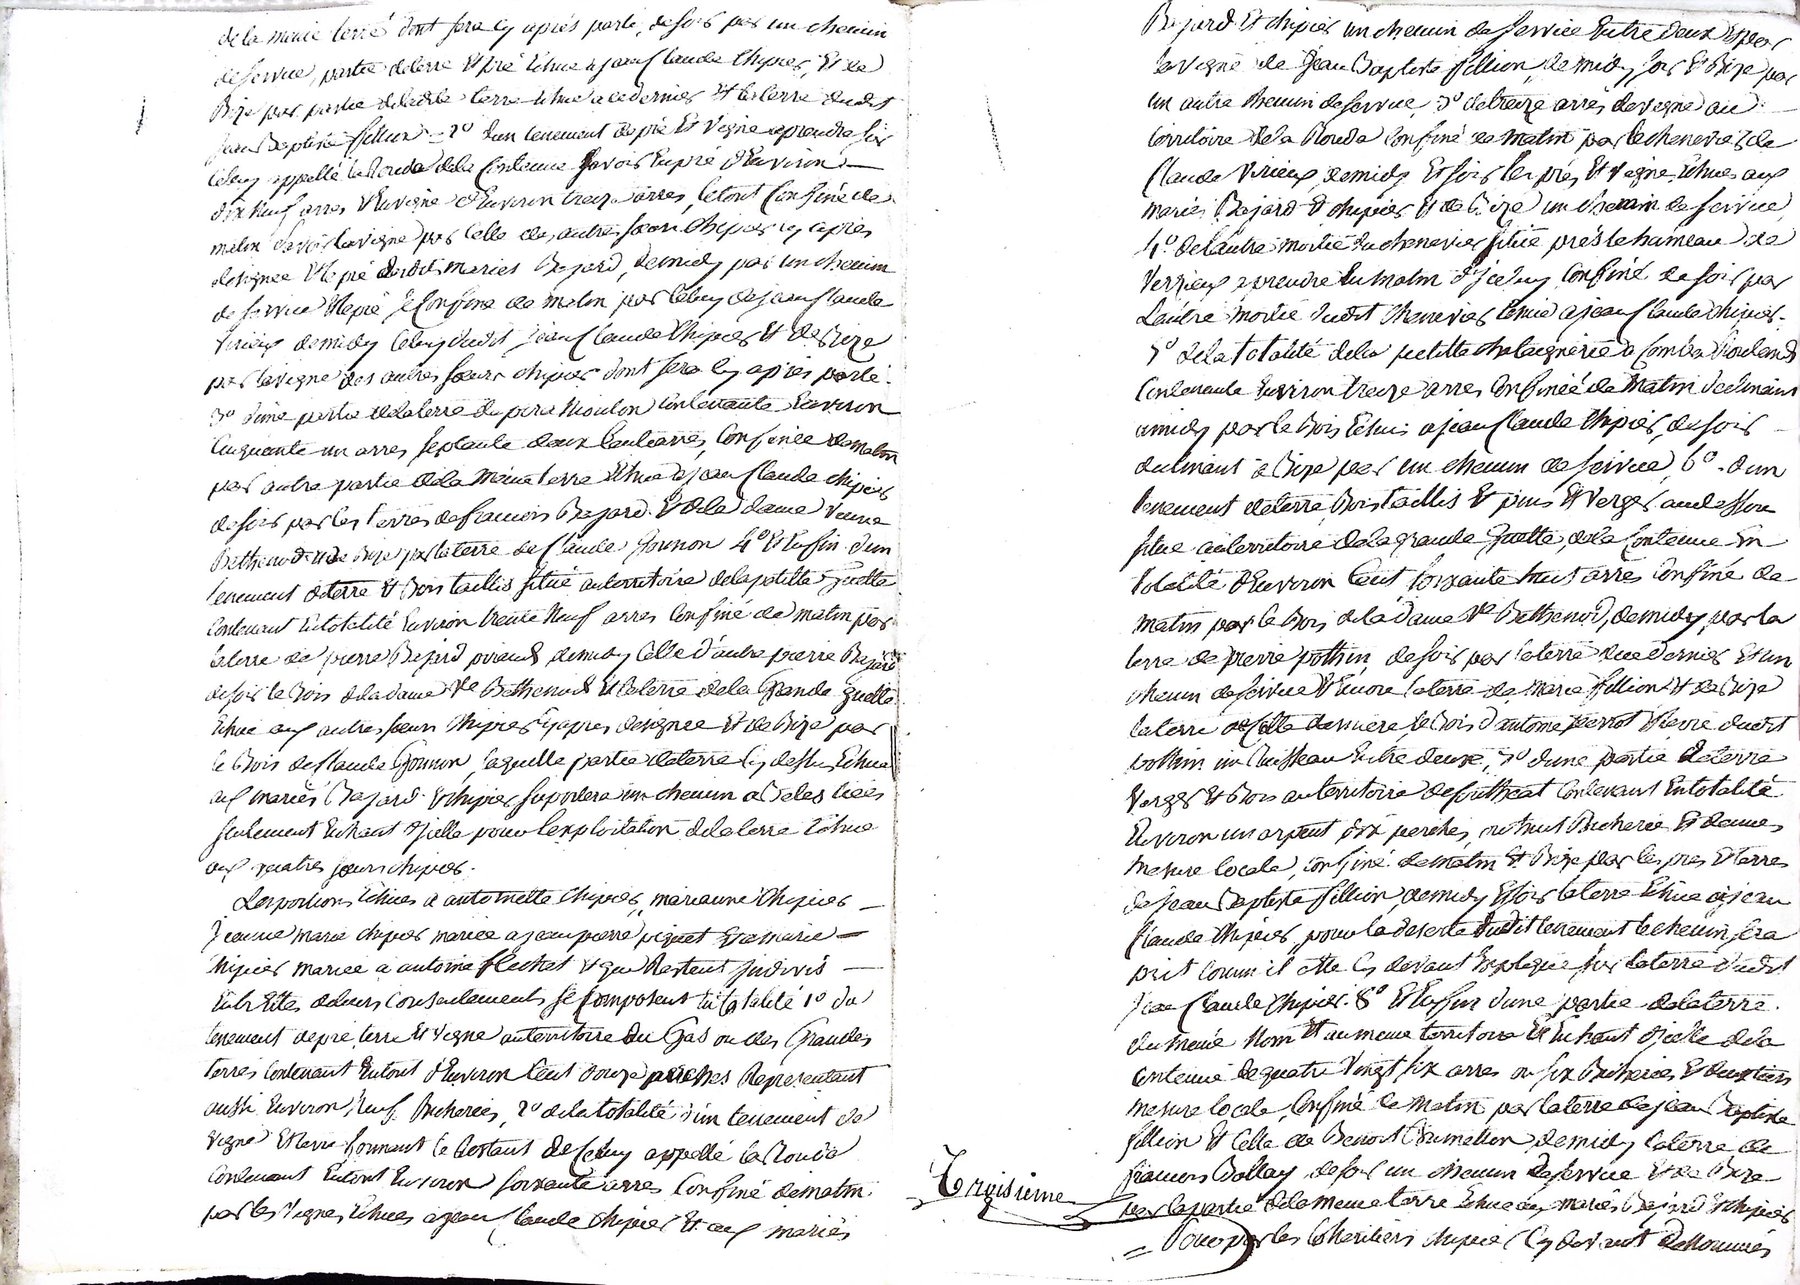 de la meme terre dont sera cy après parlé, de soir par un chemin
de service, partie de terre et pré échue a jean Claude Chipier, et de
Bize par partie de ladite terre échue a ce dernier et la terre dudit
Jean Baptiste fillion - 2º d'un tenement de pré et vigne a prendre sur
celuy appellé la Rouda de la Contenue savoir En pré d'Environ
dix neuf arres et En vigne d'Environ treize arres, le tout Confiné de
matin savoir la vigne par Celle des autres sœurs Chipier cy après
designée et le pré desdits mariés Bejard, de midy par un chemin
de service et le pré se Confine de matin par celuy de jean Claude
Virieux de midy celuy dudit jean Claude Chipier et de Bize
par la vigne des autres sœurs chipier dont sera cy après parlé.
3º d'une partie de la terre du pera Moulon contenante Environ
Cinquante un arres septante deux Centiarres, Confinée de matin
par autre partie de la même terre Echue a jean Claude chipier
de soir par les terres de francois Bejard et de la dame veuve
Bethenod et de Bize par la terre de Claude Gounon 4º Et Enfin d'un
tenement de terre et Bois taillis situé au territoire de la petitte Guette
Contenant En totalité Environ trente Neuf arres Confiné de matin par
la terre de pierre Bejard puiné de midy Celle d'autre pierre Bejard
de soir le Bois de la dame Ve Bethenod et la terre de la Grande guette
Echue aux autres sœurs Chipier cy après designée Et de Bize par
le Bois de Claude Gounon, laquelle partie de terre cy dessus Echue
aux mariés Bejard et chipier suportera un chemin a Betes liées
seulement En haut d'jcelle pour l'exploitation de la terre Echue
aux quatres sœurs chipier.
Les portions Echues a antoinette Chipier, marianne Chipier
Jeanne marie chipier mariée a jean pierre piguet Et a marie
Chipier mariée a antoine flechet et qui Restent Jndivis
Entr'Elles de leurs consentements se Composent En totalité 1º du
tenement de pré terre Et vigne au territoire du Gas ou des Grandes
terres Contenant En tout d'Environ Cent douze perches Representant
aussi Environ Neuf Bicherées, 2º de la totalité d'un tenement de
vigne Et terre formant le Restant de Celuy appellé la Rouda
Contenant En tout Environ soixante arres Confiné de matin
par les vignes Echues a jean Claude Chipier Et aux mariés
Bejard Et chipier un chemin de service Entre deux Et par
la vigne de Jean Baptiste fillion, de midy soir Et Bize par
un autre chemin de service, 3º de treize arres de vigne au
territoire de la Rouda Confiné de matin par le chenevier de
Claude Virieux, de midy Et soir les prés Et vigne Echues aux
mariés Bejard Et chipier et de Bize un chemin de service,
4º de l'autre moitié du chenevier situé près le hameau de
Verrieux a prendre En matin d'jceluy Confiné de soir par
L'autre moitié dudit Chenevier Echue a jean Claude chipier.
5º de la totalité de la petitte chataignerie a
Contenante Environ treize arres Confinée de Matin declinant
a midy par le Bois Echu a jean Claude Chipier, de soir
declinant a Bize par un chemin de service, 6º. d'un
tenement de terre, Bois taillis Et pins Et Verger au dessous
situé au territoire de la grande Guette, de la Contenue En
totalité d'Environ Cent soixante huit arres Confiné de
matin par le Bois de la dame Ve Bethenod, de midy par la
terre de pierre pothin, de soir par la terre de ce dernier Et un
chemin de service et Encore la terre de Marie fillion et de Bize
la terre de Cette derniere le Bois d'antoine perrot pierre dudit
pothin un Ruisseau Entre deux, 7º d'une partie de terre
Verger et Bois au territoire de Contenant En totalité
Environ un arpent dix perches, ou huit Bicherée Et demies
Mesure locale, Confiné de matin et Bize par les prés Et terres
de Jean Baptiste fillion, de midy Et soir la terre Echue a jean
Claude Chipier, pour la deserte dudit tenement le chemin sera
prit comm'il etté cy devant Expliqué sur la terre dudit
Jean Claude Chipier. 8º Et Enfin d'une partie de la terre
du même Nom Et au meme territoire Et En haut d'jcelle de la
Contenue de quatre Vingt six arres ou six Bicherées Et deux tiers
mesure locale, Confiné de Matin par la terre de jean Baptiste
fillion Et Celle de Benoit de midy la terre de
francois Bollay de soir un chemin de service Et de Bize
par la partie de la meme terre Echue aux mariés Bejard Et chipier
Troisieme
= Pour par les Coheritiers chipier Cy devant dénommés